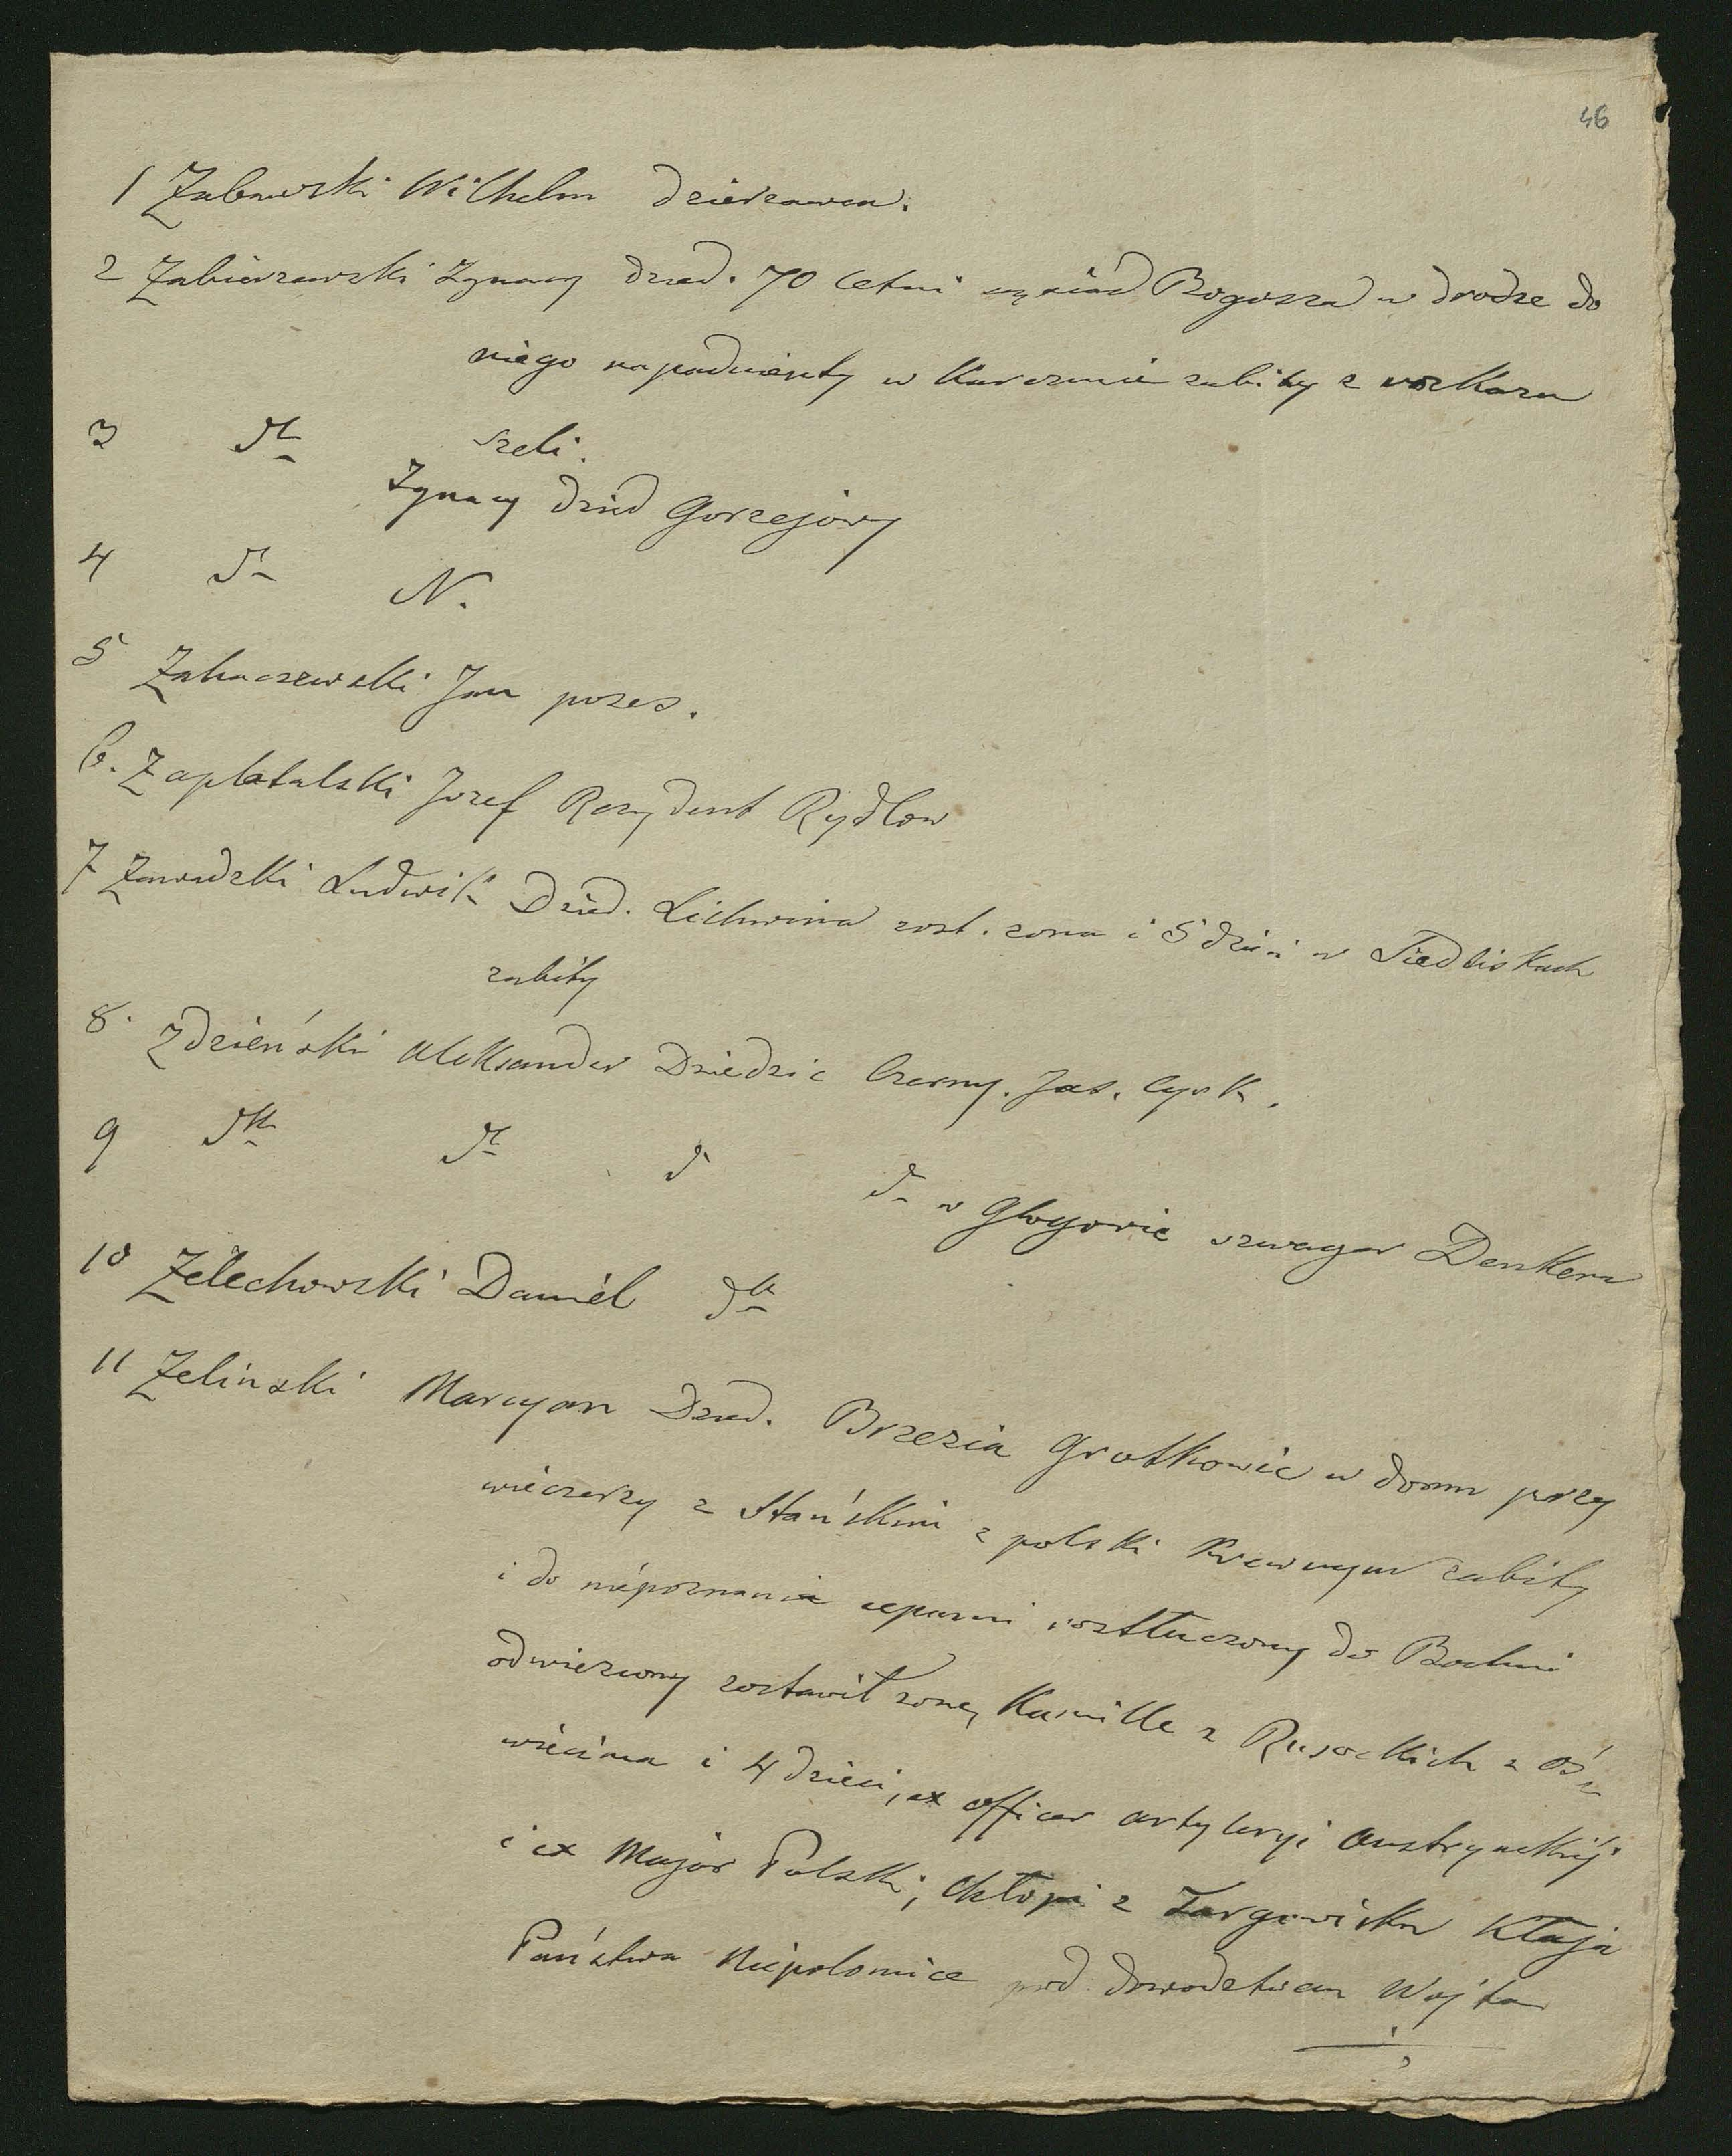 46
1 Zabawski Wilhelm dzierzawca.
2 Zabierzewski Ignacy dzied. 70 letni sąsiad Bogusza w drodze do
niego napadnienty w Karczmie zabity z rozkazu
Szeli.
3 dto Ignacy dzied Gorzejowy
4 dto N.
5 Zahaczewski Jan poses.
6. Zaplatalski Jozef Rezydent Rydlow
7 Zawadzki Ludwik Dzied. Lichwina zost. zona i 5 dzieci w Siedliskach
zabity
8. Zdzieński Aleksander Dziedzic Czermy. Jas. Cyrk.
9 dto dto d d w Głogowie szwagier Denkera
10 Zelechowski Daniel dto
11 Zelinski Marcyan Dzied. Brzezia Grotkowic w domu przy
wieczerzy z Stańskim z polski Krewnym zabity
i do niepoznania cepami roztłuczony do Bochni
odwieziony zostawił zonę Kamille z Rusockich z Oś
wiecima i 4 dzieci, ex officer artyleryi austryackiéj
i ex Major Polski; Chłopi z Targowiska Kłaja
Państwa Niepolomice pod dowodztwem Wojta